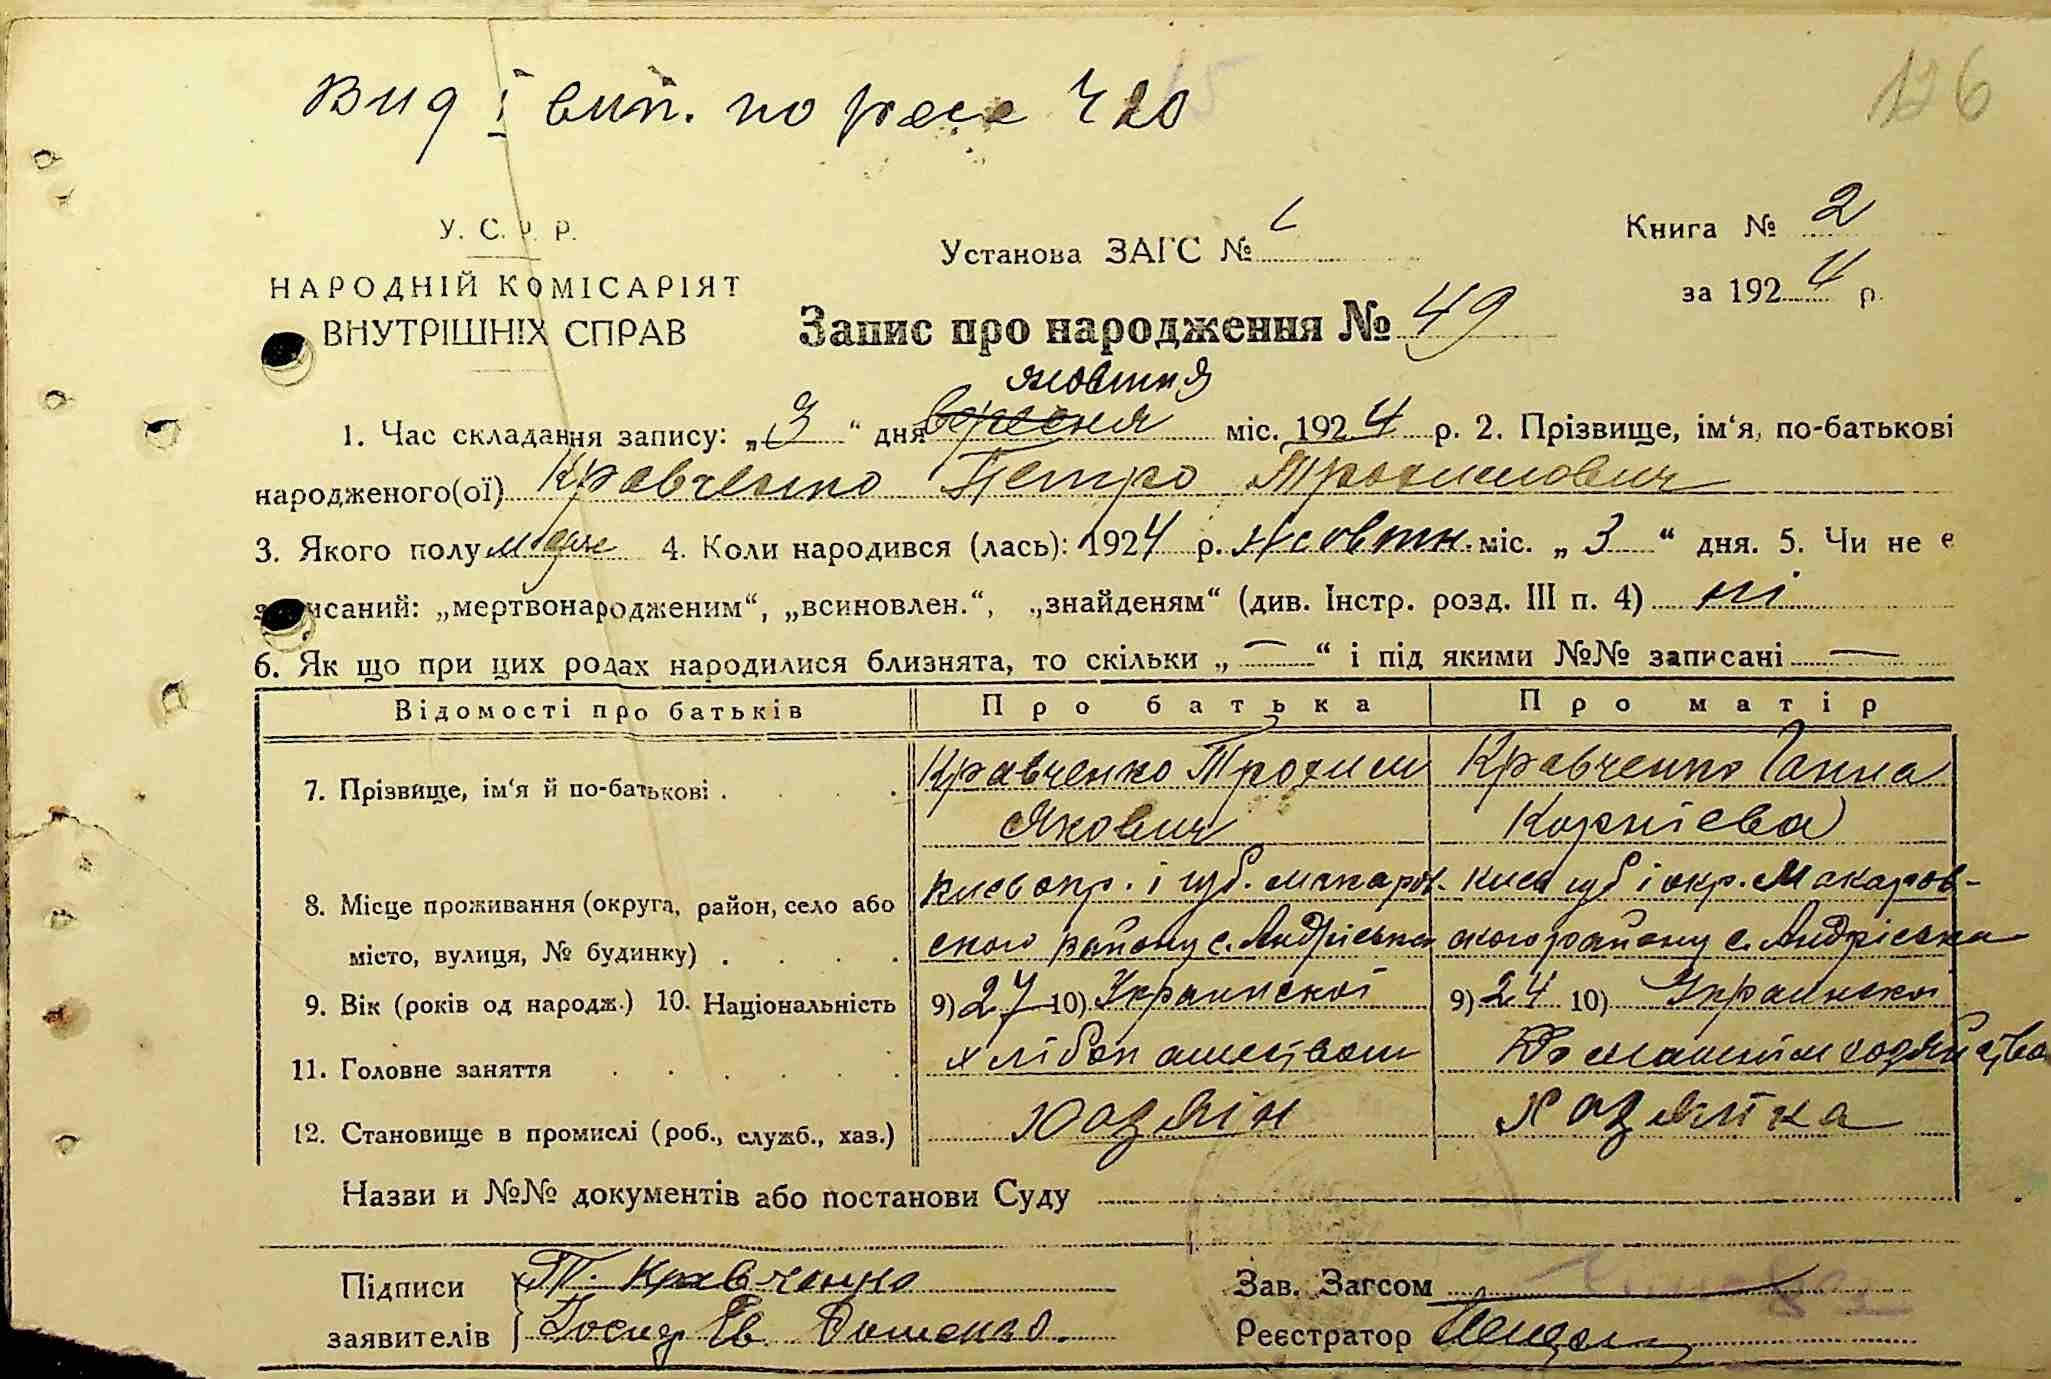 Вид і вип. по
126
У. С. Р. Р.
НАРОДНІЙ КОМІСАРІЯТ
ВНУТРІШНІХ СПРАВ
Установа ЗАГС №
Книга № 2
за 1924 р.
Запис про народження № 49
жовтня
1. Час складання запису: „3“ дня вересня міс. 1924 р. 2. Прізвище, ім‘я, по-батькові
народженого(ої) Кравченко Петро Трохимович
3. Якого полу 4. Коли народився (лась): 1924 р. Жовтн. міс. „3“ дня. 5. Чи не є
записаний: „мертвонародженим“, „всиновлен.“, „знайденям“ (див. Інстр. розд. III п. 4) ні
6. Як що при цих родах народилися близнята, то скільки „—“ і під якими №№ записані —
Відомості про батьків Про батька Про матір
7. Прізвище, ім‘я й по-батькові . . . . Кравченко Трохим Кравченко Ганна
Якович Корнієва
8. Місце проживання (округа, район, село або Київ окр. і губ. макаров- Київ губ і окр. Макаров-
місто, вулиця, № будинку) . . . . ского району с. Андріевка ского району с. Андріевка
9. Вік (років од народж.) 10. Національність 9) 27 10) Украинскоі 9) 24 10) Украинскоі
11. Головне заняття . . . . . . хлібопашеством Домашнім хозяйством
12. Становище в промислі (роб., служб., хаз.) Хозяін Хозяйка
Назви и №№ документів або постанови Суду
Підписи Т. Кравченко Зав. Загсом
заявителів Реєстратор